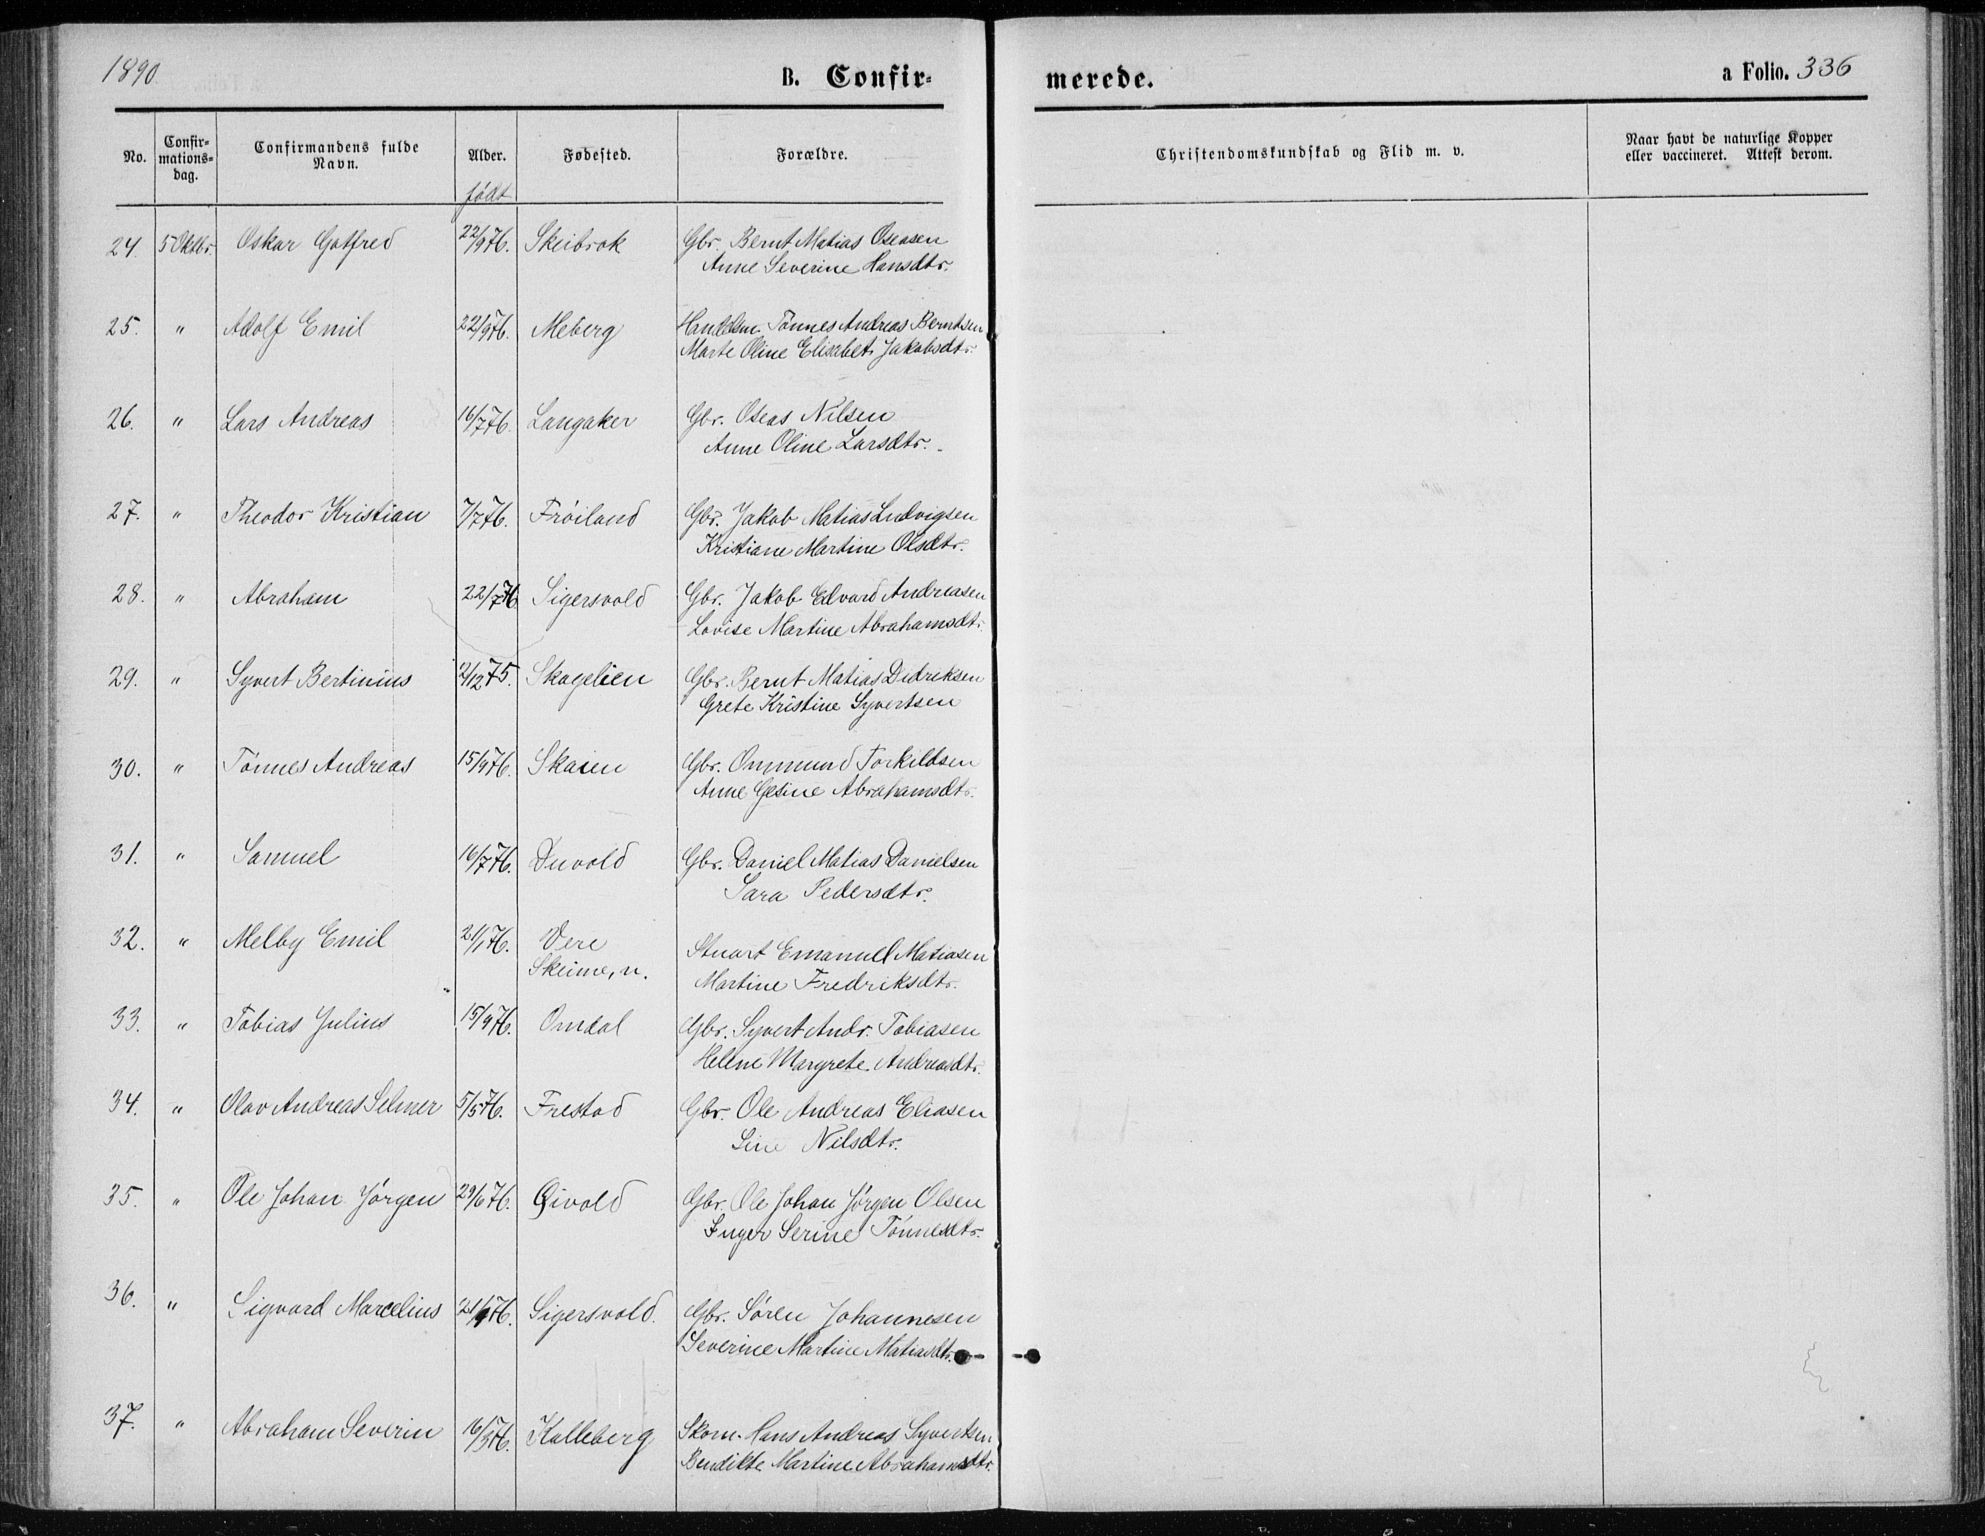 1890.
B. Confir-
merede.
a Folio. 336
No. Confir-mations-dag. Confirmandens fulde Navn. Alder. Fødested. Forældre. Christendomskundskab og Flid m. v. Naar havt de naturlige Kopper eller vaccineret. Attest derom.
født
24. 5 Oktbr. Oskar Gotfred 22/9 76. Skeibrok Gbr. Bernt Matias Oseasen
Anne Severine Hansdtr.
25. " Adolf Emil 22/9 76. Meberg Handelsm. Tønnes Andreas Berntsen
Marte Oline Elisabet Jakobsdtr.
26. " Lars Andreas 16/7 76. Langaker Gbr. Oseas Nilsen
Anne Oline Larsdtr.
27. " Theodor Kristian 7/7 76. Frøiland Gbr. Jakob Matias Ludvigsen
Kristiane Martine Olsdtr.
28. " Abraham 22/7 76 Sigersvold Gbr. Jakob Edvard Andreasen
Lovise Martine Abrahamsdtr.
29. " Syvert Bertinius 2/12 75. Skogelien Gbr. Bernt Matias Didriksen
Grete Kristine Syvertsen
30. " Tønnes Andreas 15/9 76. Skaien Gbr. Ommund Torkildsen
Anne Gesine Abrahamsdtr.
31. " Samuel 16/7 76. Duvold Gbr. Daniel Matias Danielsen
Sara Pedersdtr.
32. " Melby Emil 21/1 76. Vere
Skeime, n. Stuart Emanuel Matiasen
Martine Fredriksdtr.
33. " Tobias Julius 15/9 76. Omdal Gbr. Syvert Andr. Tobiasen
Helene Margrete Andreasdtr.
34. " Olav Andreas Selmer 5/5 76. Frestad Gbr. Ole Andreas Eliasen
Sine Nilsdtr.
35. " Ole Johan Jørgen 29/6 76. Qivold Gbr. Ole Johan Jørgen Olsen
Inger Serine Tønnesdtr.
36. " Sigvard Marcelius 21/9 76. Sigersvold. Gbr. Søren Johannesen
Severine Martine Matiasdtr.
37. " Abraham Severin 16/3 76. Kalleberg Skom. Hans Andreas Syvertsen
Bendikte Martine Abrahamsdtr.